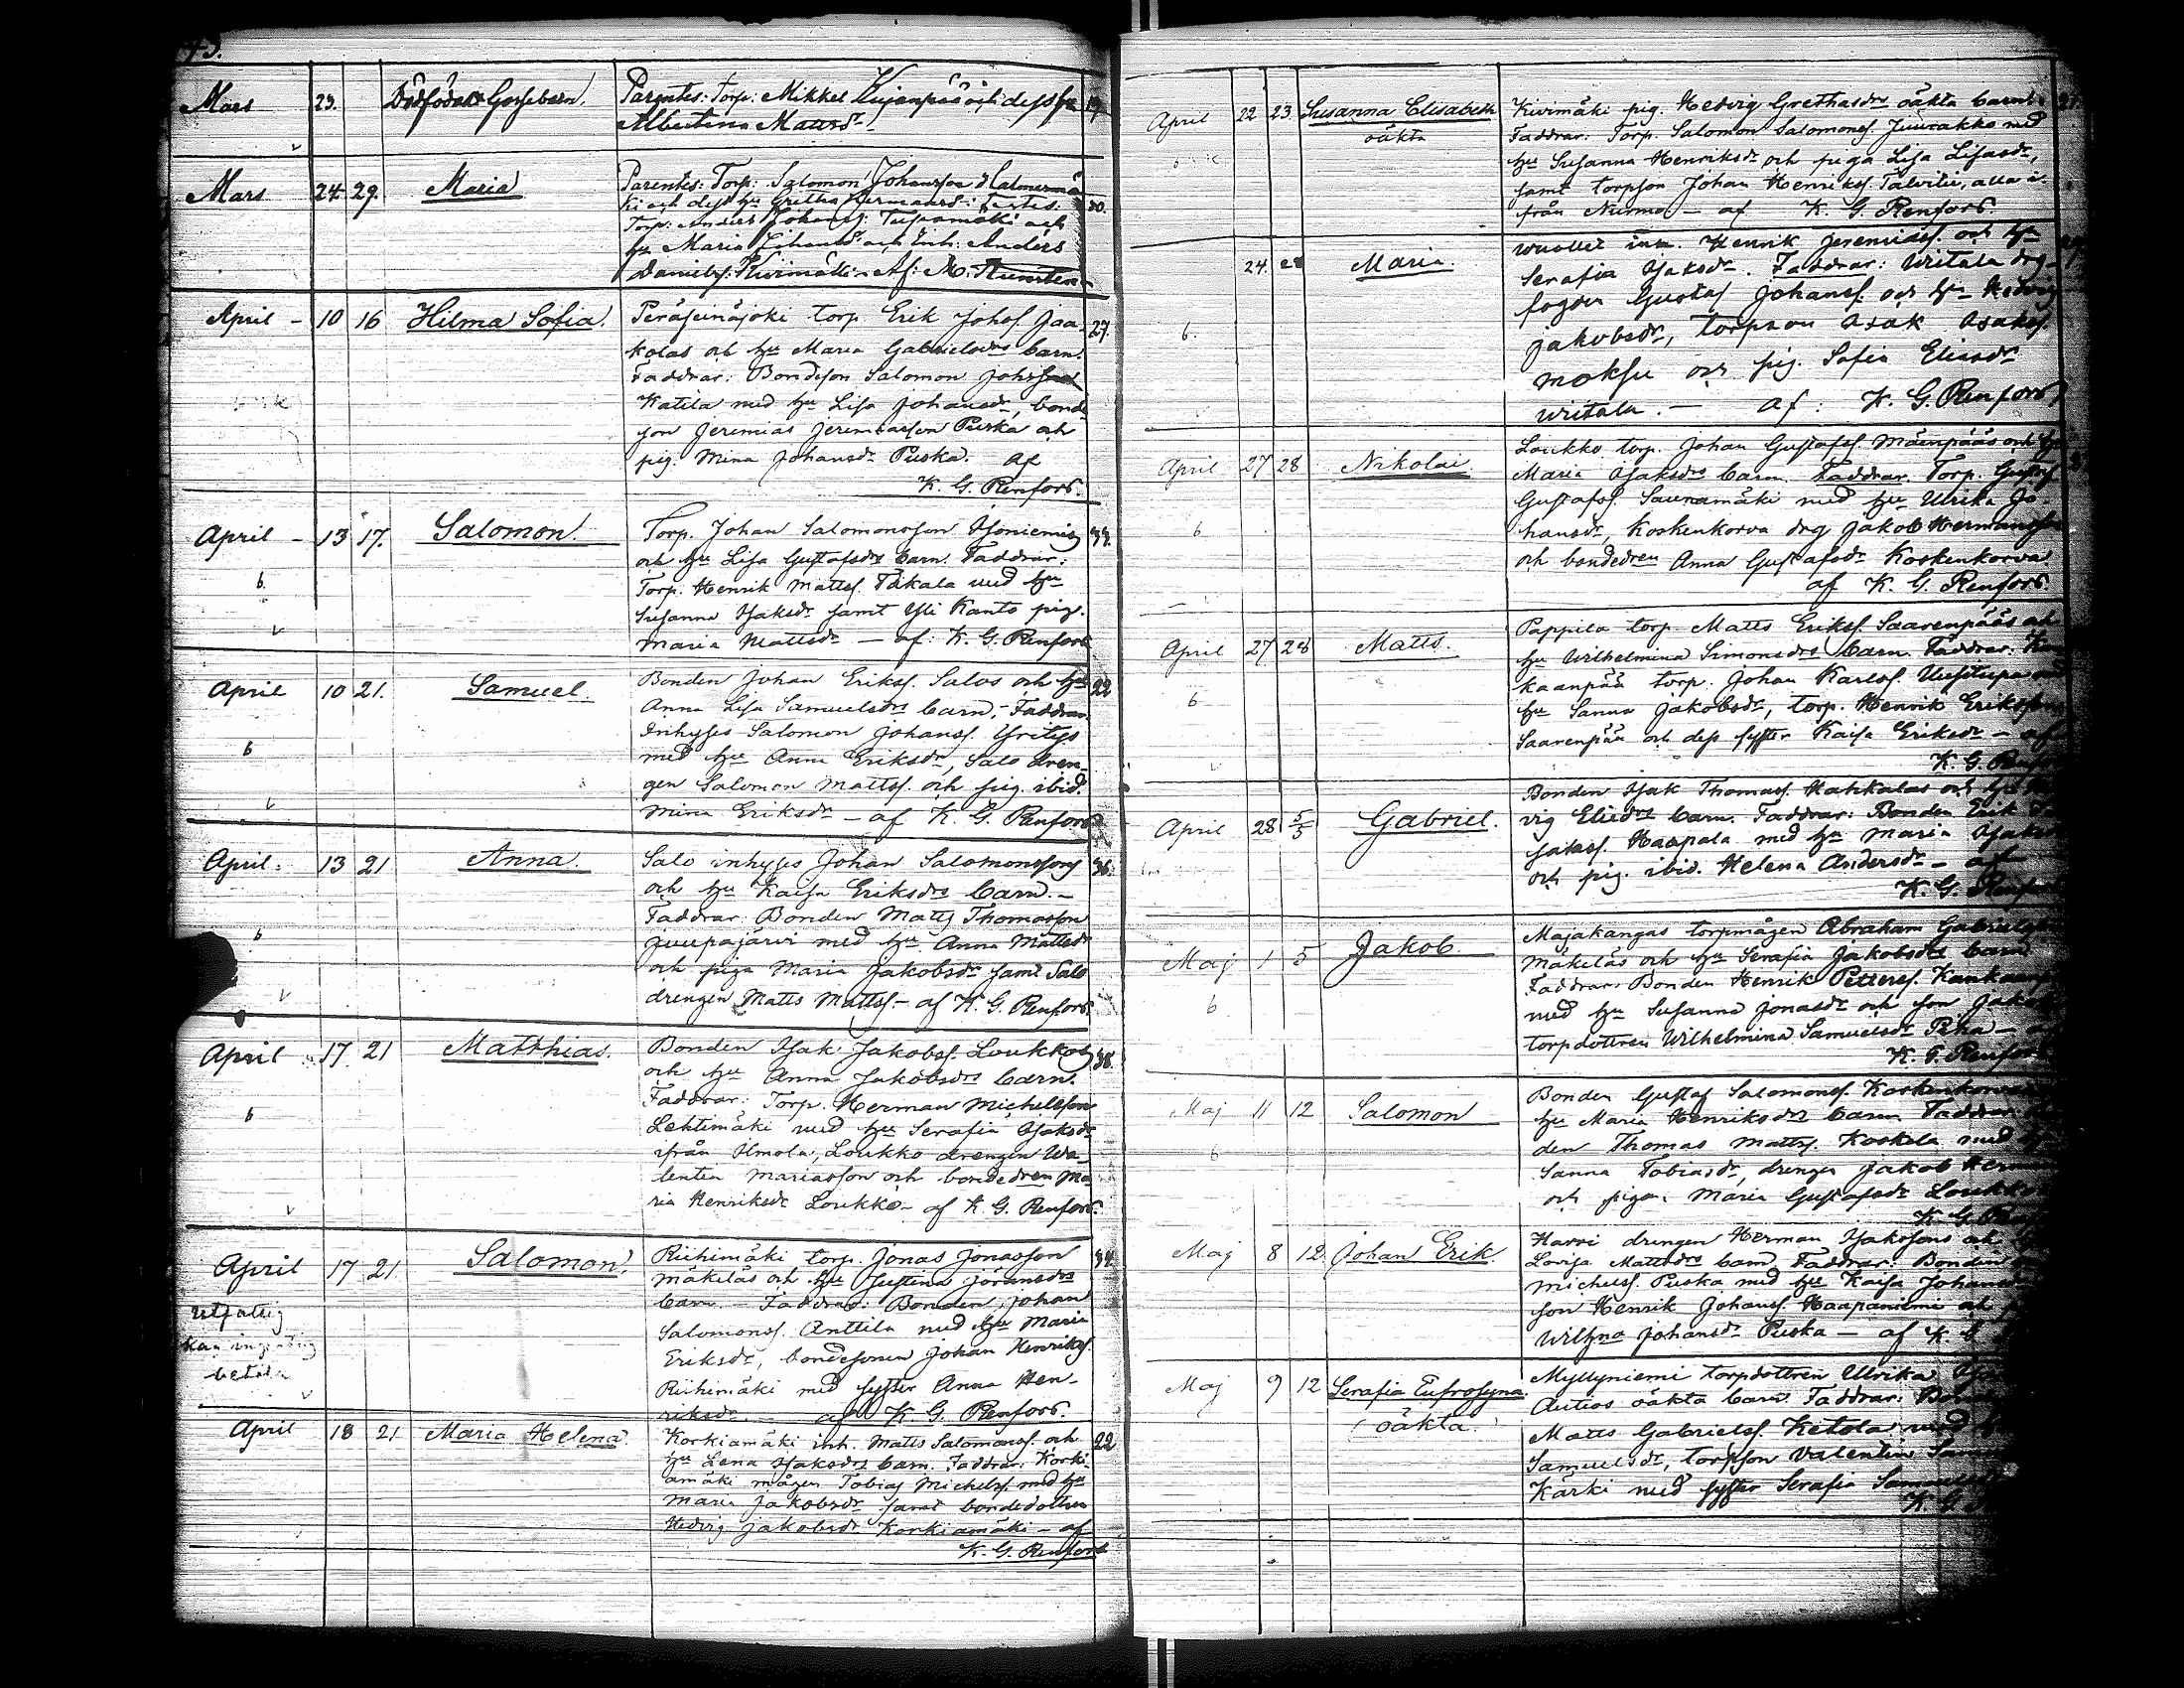 43.
Mars 23. Dödfödt Gossebarn. Parentes: Torp: Mikkel Kujanpää och dess hu
Albertina Mattsdr
Mars 24. 29. Maria Parentes: Torp: Salomon Johansson
ki och dess hu Gretha Hermansd: testes: 30.
Torp: Anders Johanss:
hu Maria och Inh: Anders
Daniels: Kivimäki. Af: M.
April - 10 16 Hilma Sofia. Peräseinäjoki torp Erik Johss Jaa- 27.
kolas och hu Maria Gabrielsdrs barn.
Faddrar: Bondeson Salomon
Katila med hu Lisa Johansdr, bonde
son Jeremias Jeremiasson Puska och
pig. Mina Johansdr Puska. af
K. G. Renfors.
April - 13 17. Salomon. Torp. Johan Salomonsson Isoniemis
och hu Lisa Gustafsdrs barn. Faddrar:
Torp. Henrik Mattss. Takala med hu
Susanna Isaksdr samt Yli Kanto pig.
Maria Mattsdr — af: K. G. Renfors
6
April 10 21. Samuel. Bonden Johan Erikss. Salos och hu 22
Anna Lisa Samuelsdrs barn, - Faddrar.
Inhyses Salomon Johanss. Yritys
med hu Anna Eriksdr, Salo dren-
gen Salomon Mattss. och pig. ibid.
Mina Eriksdr — af K. G. Renfors
6
April. 13 21 Anna. Salo inhyses Johan Salomonssons 36.
och hu Kaisa Eriksdrs barn. —
Faddrar. Bonden Matts Thomasson
Juupajärvi med hu Anna Mattsdr
och piga Maria Jakobsdr samt Salo
drengen Matts Mattss. — af K. G. Renfors.
6
April 17. 21 Matthias. Bonden Isak Jakobss. Loukkos 38.
och hu Anna Jakobsdrs barn.
Faddrar: Torp. Herman Michelsson
Lehtimäki med hu Serafia Isaksdr
ifrån Ilmola, Loukko drengen Wa-
lentin Mariasson och bondedren Ma
ria Henriksdr Loukko - af K. G. Renfors.
6
April 17 21. Salomon. Riihimäki torp. Jonas Jonasson 34.
Mäkeläs och hu Justina Jöransdrs
barn. — Faddrar: Bonden Johan
Salomonss. Anttila med hu Maria
Eriksdr, bondesonen Johan Henrikss.
Riihimäki med syster Anna Hen-
riksdr. — af K. G. Renfors.
utfattig
kan ingenting
betala
April 18 21 Maria Helena. Korkiamäki inh. Matts Salomonss. och 22
hu Lena Isaksdrs barn. Faddrar: Korki-
amäki mågen Tobias Michelss. med hu
Maria Jakobsdr samt bondedottren
Hedvig Jakobsdr Korkiamäki — af
K. G. Renfors
April 22 23. Susanna Elisabeth Kivimäki pig. Hedvig Grethasdrs oäkta barn
oäkta Faddrar: Torp. Salomon Salomonss. Juurakko med
hu Susanna Henriksdr och piga Lisa Lisasdr,
samt torpson Johan Henrikss. Talvitie, alla i-
från Nurmo — af K. G. Renfors.
6
24. 28 Maria. inh. Henrik Jeremiass. och hu
Serafia Isaksdr. Faddrar: Writala drg
fogden Gustaf Johanss. och hu Hedvig
Jakobsdr, torparen Isak Isakss.
Moksu och pig. Sofia Eliasdr
Writala. — af: K. G. Renfors
6.
April 27 28 Nikolai. Loukko torp. Johan Gustafss. Mäenpääs och hu
Maria Isaksdrs barn. Faddrar. Torp. Gustaf
Gustafss. Saunamäki med hu Ulrika Jo
hansdr, Koskenkorva drg Jakob Hermansson
och bondedren Anna Gustafsdr Koskenkorva.
af K. G. Renfors.
6
April 27 28 Matts. Pappila torp. Matts Erikss. Saarenpääs och
hu Wilhelmina Simonsdrs barn. Faddrar.
kaanpää torp. Johan Karlss. Uusitupa med
hu Sanna Jakobsdr, torp. Henrik Eriksson
Saarenpää och dess syster Kaisa Eriksdr — af
K. G. Renfors
6
April 28 5/5 Gabriel. Bonden Isak Thomass. Hahkalas och hu
vig Eliedrs barn. Faddrar: Bonden Erik
Haapala med hu Maria Isaksdr
och pig. ibid. Helena Andersdr — af
K. G. Renfors
Maj 1 5 Jakob. Majakangas torpmågen Abraham Gabriels
Mäkeläs och hu Serafia Jakobsdrs barn
Faddrar. Bonden Henrik Petterss. Kankaanpää
med hu Susanna Jonasdr och son Jakob
torpdottren Wilhelmina Samuelsdr Piha —
K. G. Renfors
6
Maj 11 12 Salomon Bonden Gustaf Salomonss. Koskenkorva
hu Maria Henriksdrs barn Faddrar:
den Thomas Mattss. Koskela med
Sanna Tobiasdr, drengen Jakob
och pigan Maria Gustafsdr Loukko
K. G.
6
Maj 8 12. Johan Erik. Harri drengen Herman Isakssons och
Lovisa Mattsdrs barn Faddrar: Bonden
Michelss. Puska med hu Kaisa Johansdr
son Henrik Johanss. Haapaniemi och
Wilhna Johansdr Puska — af K. G.
Maj 9 12 Serafia Eufrosyna. Myllyniemi torpdottren Ulrika
oäkta. Autios oäkta barn Faddrar:
Matts Gabrielss. Ketola med
Samuelsdr, torpson Valentin
Kärki med syster Serafia
K. G.